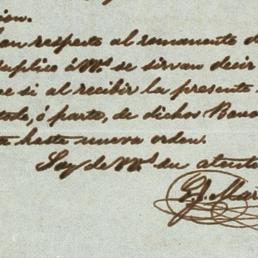 ion.
on respecto al remanente d
suplico á VVs se sirvan decir
e si al recibir la presente
todo, ó parte, de dichos Bono
a hasta nueva orden.
Soy de VVs su atento